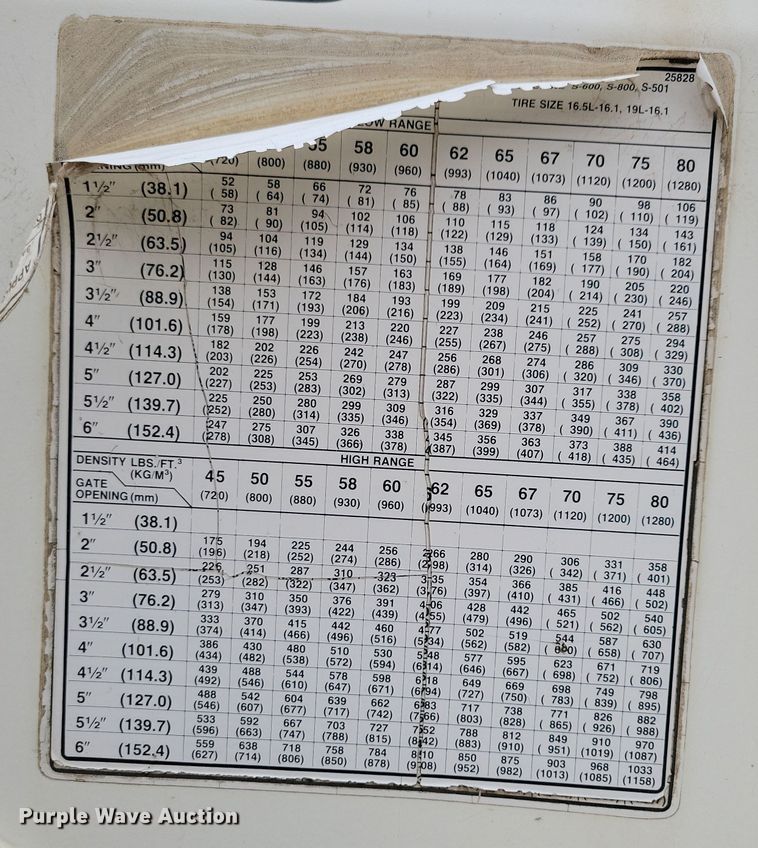 25828
S-800, S-501
TIRE SIZE 16.5L-16.1, 19L-16.1
LOW RANGE
58 60 62 65 67 70 75 80
(720) (800) (880) (930) (960) (993) (1040) (1073) (1120) (1200) (1280)
1½" (38.1) 52 58 66 72 76 78 83 86 90 98 106
(58) (64) (74) (81) (85) (88) (93) (97) (102) (110) (119)
2" (50.8) 73 81 94 102 106 110 115 118 124 134 143
(82) (90) (105) (114) (118) (122) (129) (133) (139) (150) (161)
2½" (63.5) 94 104 119 129 134 138 146 151 158 170 182
(105) (116) (134) (144) (150) (155) (164) (169) (177) (190) (204)
3" (76.2) 115 128 146 157 163 169 177 182 190 205 220
(130) (144) (163) (176) (183) (189) (198) (204) (214) (230) (246)
3½" (88.9) 138 153 172 184 193 199 209 215 225 241 257
(154) (171) (193) (206) (216) (223) (234) (241) (252) (270) (288)
4" (101.6) 159 177 199 213 220 227 238 246 257 275 294
(178) (198) (223) (238) (246) (255) (267) (275) (288) (308) (329)
4½" (114.3) 182 202 226 242 247 256 268 274 286 309 330
(203) (226) (254) (270) (278) (286) (301) (306) (320) (346) (370)
5" (127.0) 202 225 253 269 279 287 299 307 317 338 358
(227) (253) (283) (302) (313) (322) (335) (344) (355) (378) (402)
5½" (139.7) 225 250 280 299 309 316 329 337 349 367 390
(252) (280) (314) (335) (346) (354) (369) (378) (390) (411) (436)
6" (152.4) 247 275 307 326 338 345 356 363 373 388 414
(278) (308) (345) (366) (378) (387) (399) (407) (418) (435) (464)
HIGH RANGE
DENSITY LBS./FT.³
(KG/M³)
GATE
OPENING (mm)
45 50 55 58 60 62 65 67 70 75 80
(720) (800) (880) (930) (960) (993) (1040) (1073) (1120) (1200) (1280)
1½" (38.1)
2" (50.8) 175 194 225 244 256 266 280 290 306 331 358
(196) (218) (252) (274) (286) (298) (314) (326) (342) (371) (401)
2½" (63.5) 226 251 287 310 323 335 354 366 385 416 448
(253) (282) (322) (347) (362) (376) (397) (410) (431) (466) (502)
3" (76.2) 279 310 350 376 391 406 428 442 465 502 540
(313) (347) (393) (422) (439) (455) (479) (496) (521) (562) (605)
3½" (88.9) 333 370 415 442 460 477 502 519 544 587 630
(374) (414) (466) (496) (516) (534) (562) (582) (658) (707)
4" (101.6) 386 430 480 510 530 548 577 595 623 671 719
(434) (482) (538) (572) (594) (614) (646) (667) (698) (752) (806)
4½" (114.3) 439 488 544 578 598 618 649 669 698 749 798
(492) (546) (610) (647) (671) (694) (727) (750) (783) (839) (895)
5" (127.0) 488 542 604 639 662 683 717 738 771 826 882
(546) (607) (677) (717) (742) (766) (803) (828) (865) (926) (988)
5½" (139.7) 533 592 667 703 727 752 788 812 849 910 970
(596) (663) (747) (788) (815) (842) (883) (910) (951) (1019) (1087)
6" (152.4) 559 638 718 758 784 810 850 875 903 968 1033
(627) (714) (806) (850) (878) (908) (952) (982) (1013) (1085) (1158)
Purple Wave Auction